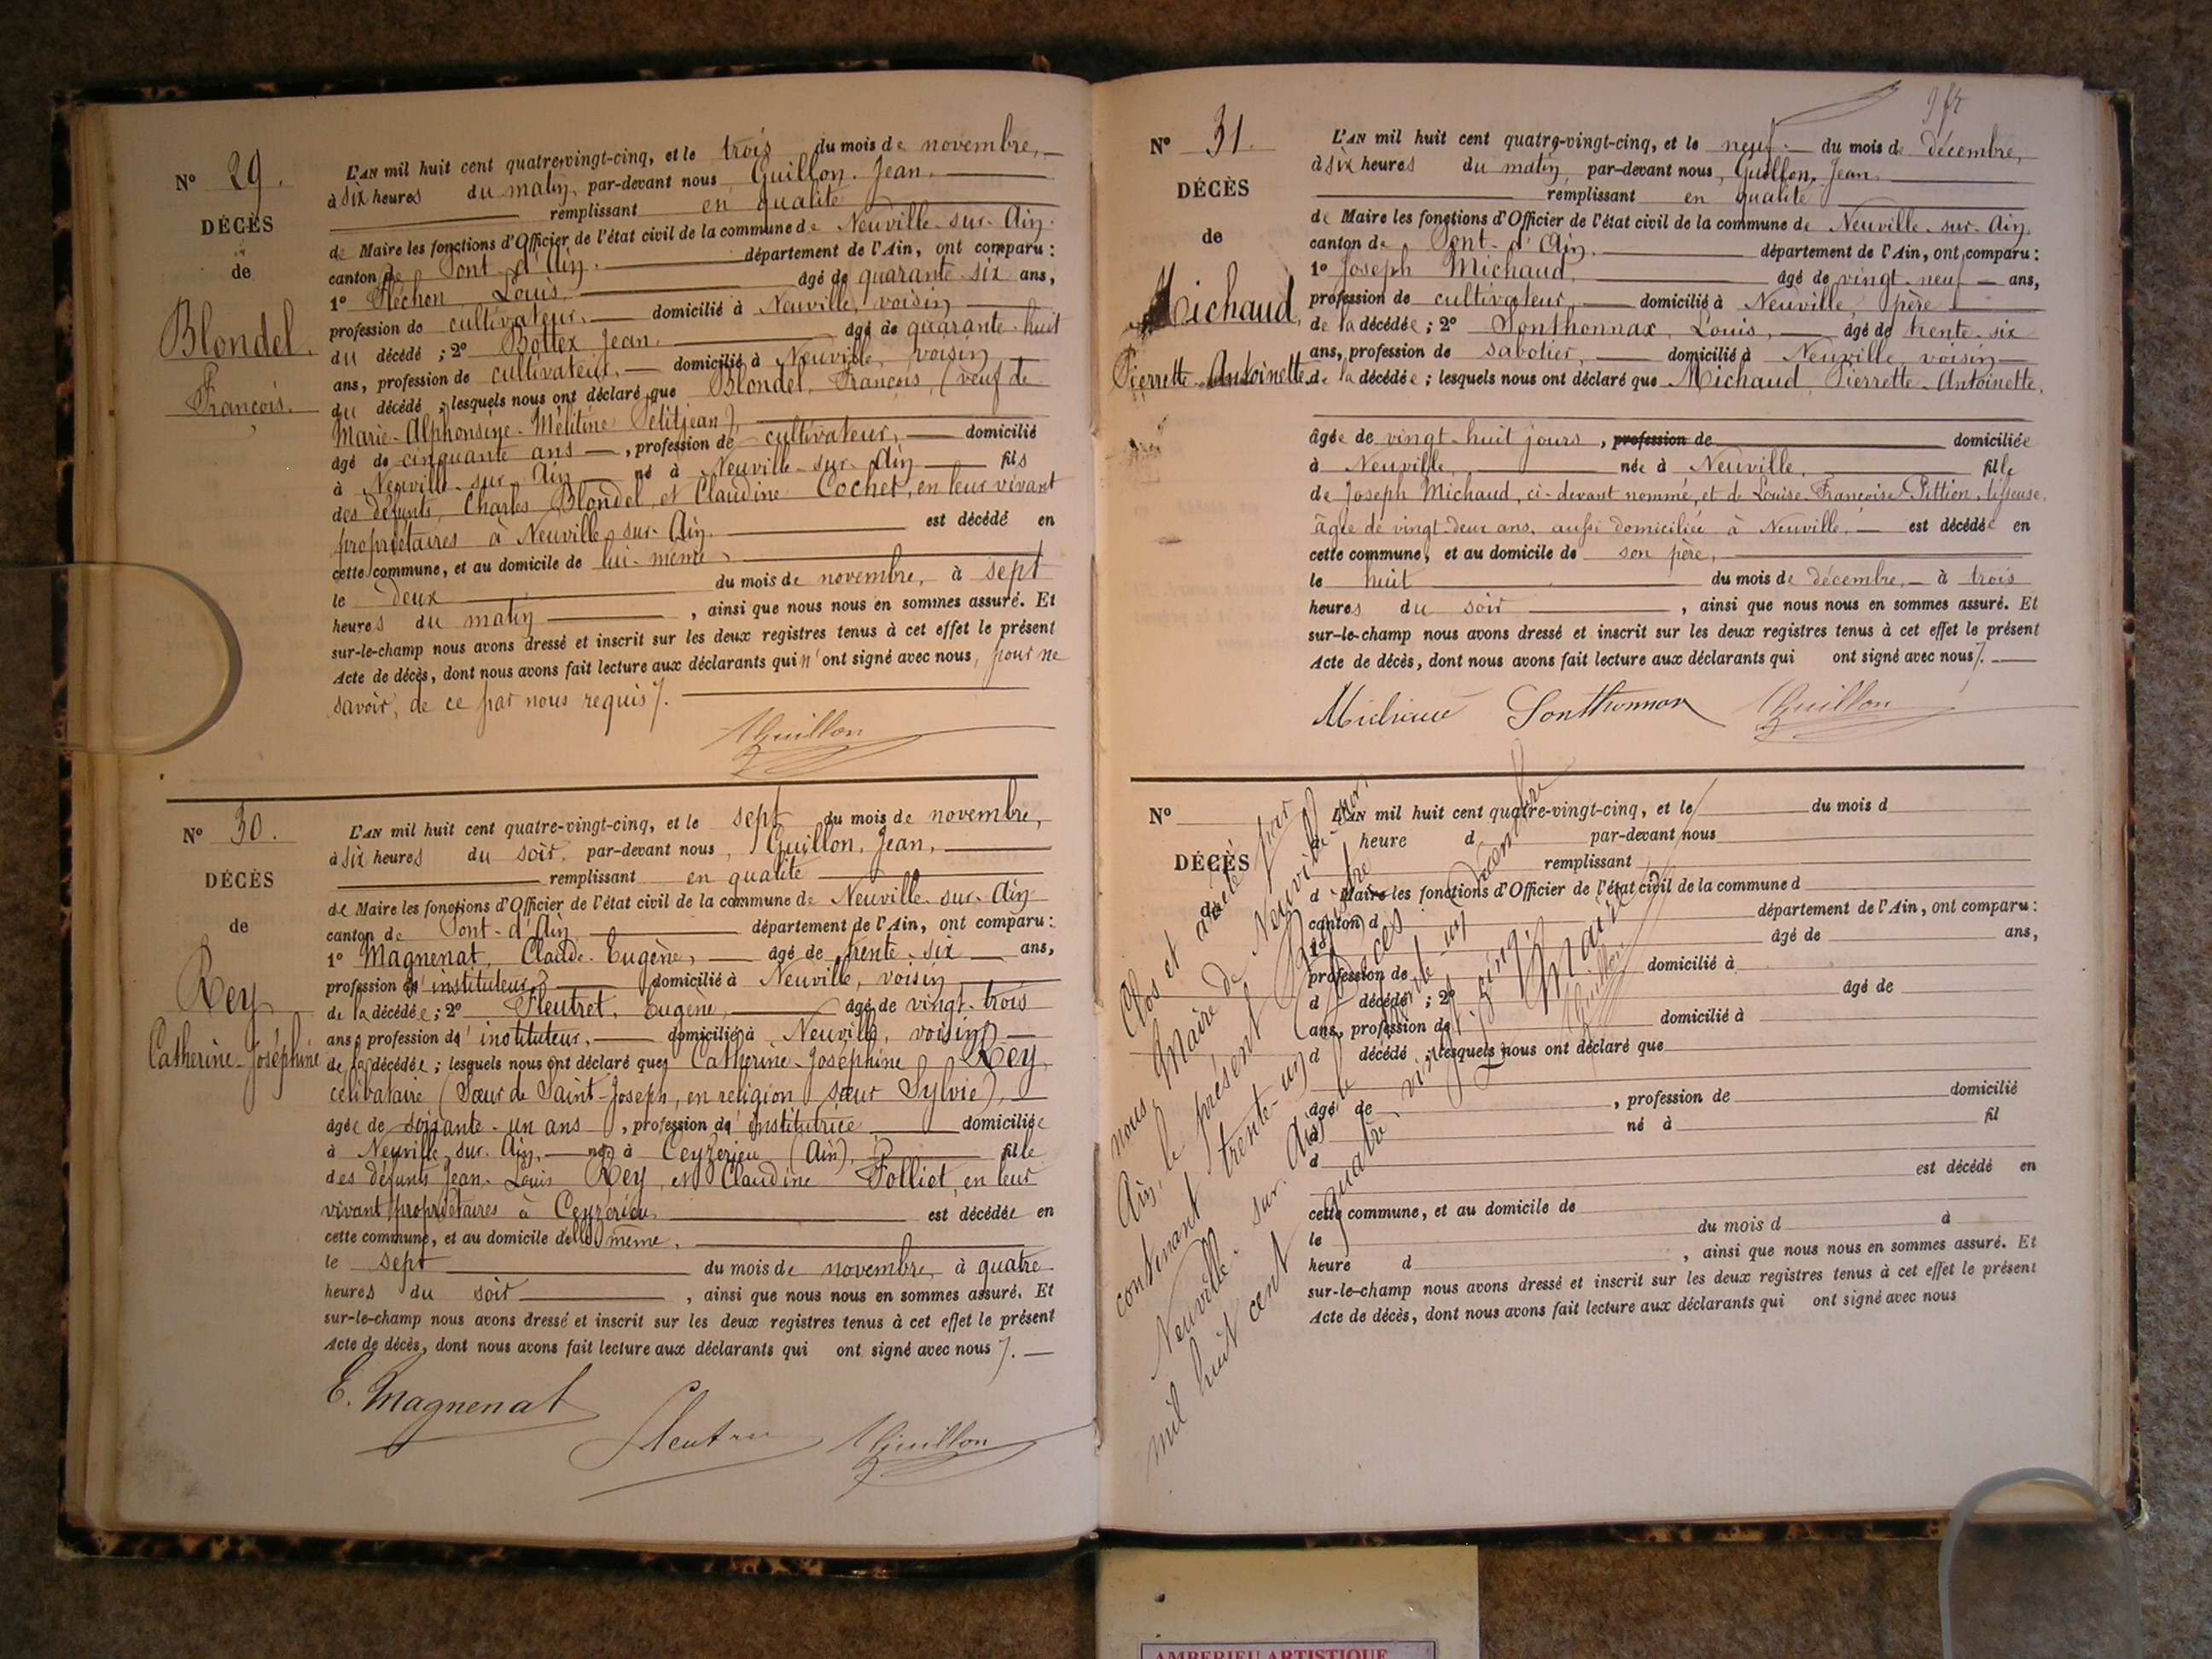 N° 29.
DÉCÈS
de
Blondel
François.
L'AN mil huit cent quatre-vingt-cinq, et le trois du mois de novembre,
à six heures du matin, par-devant nous, Guillon, Jean,
remplissant en qualité
de Maire les fonctions d'Officier de l'état civil de la commune de Neuville-sur-Ain
canton de Pont-d'Ain. département de l'Ain, ont comparu :
1° Pléchon Louis, âgé de quarante-six ans,
profession de cultivateur, domicilié à Neuville, voisin
du décédé ; 2° Bollex Jean, âgé de quarante-huit
ans, profession de cultivateur, domicilié à Neuville, voisin
du décédé ; lesquels nous ont déclaré que Blondel, François, (veuf de
Marie-Alphonsine-Mélitine Petitjean),
âgé de cinquante ans, profession de cultivateur, domicilié
à Neuville-sur-Ain né à Neuville-sur-Ain fils
des défunts, Charles Blondel, et Claudine Cochet, en leur vivant
propriétaires à Neuville-sur-Ain. est décédé en
cette commune, et au domicile de lui-même,
le deux du mois de novembre, à sept
heures du matin, ainsi que nous nous en sommes assuré. Et
sur-le-champ nous avons dressé et inscrit sur les deux registres tenus à cet effet le présent
Acte de décès, dont nous avons fait lecture aux déclarants qui n'ont signé avec nous, pour ne
savoir, de ce par nous requis /.
Guillon
N° 30.
DÉCÈS
de
Rey
Catherine-Joséphine
L'AN mil huit cent quatre-vingt-cinq, et le sept du mois de novembre,
à six heures du soir, par-devant nous, Guillon, Jean,
remplissant en qualité
de Maire les fonctions d'Officier de l'état civil de la commune de Neuville-sur-Ain
canton de Pont-d'Ain département de l'Ain, ont comparu :
1° Magnenat, Claude-Eugène, âgé de trente-six ans,
profession d'instituteur, domicilié à Neuville, voisin
de la décédée ; 2° Fleutret, Eugène, âgé de vingt-trois
ans, profession d'instituteur, domicilié à Neuville, voisin
de la décédée ; lesquels nous ont déclaré que Catherine-Joséphine Rey,
célibataire (Sœur de Saint-Joseph, en religion sœur Sylvie),
âgée de soixante-un ans, profession d'institutrice domiciliée
à Neuville-sur-Ain, née à Ceyzérieu (Ain), fille
des défunts Jean-Louis Rey, et Claudine Folliet, en leur
vivant propriétaires à Ceyzérieu est décédée en
cette commune, et au domicile d'elle-même,
le sept du mois de novembre, à quatre
heures du soir, ainsi que nous nous en sommes assuré. Et
sur-le-champ nous avons dressé et inscrit sur les deux registres tenus à cet effet le présent
Acte de décès, dont nous avons fait lecture aux déclarants qui ont signé avec nous /.
E. Magnenat
Guillon
N° 31.
DÉCÈS
de
Michaud,
Pierrette-Antoinette.
L'AN mil huit cent quatre-vingt-cinq, et le neuf du mois de décembre,
à six heures du matin, par-devant nous, Guillon, Jean,
remplissant en qualité
de Maire les fonctions d'Officier de l'état civil de la commune de Neuville-sur-Ain,
canton de Pont-d'Ain. département de l'Ain, ont comparu :
1° Joseph Michaud, âgé de vingt-neuf ans,
profession de cultivateur, domicilié à Neuville, père
de la décédée ; 2° Sonthonnax, Louis, âgé de trente-six
ans, profession de sabotier, domicilié à Neuville, voisin
de la décédée ; lesquels nous ont déclaré que Michaud, Pierrette-Antoinette,
âgée de vingt-huit jours, profession de domiciliée
à Neuville, née à Neuville, fille
de Joseph Michaud, ci-devant nommé, et de Louise-Françoise Pittion, tisseuse,
âgée de vingt-deux ans, aussi domiciliée à Neuville, est décédée en
cette commune, et au domicile de son père,
le huit du mois de décembre, à trois
heures du soir, ainsi que nous nous en sommes assuré. Et
sur-le-champ nous avons dressé et inscrit sur les deux registres tenus à cet effet le présent
Acte de décès, dont nous avons fait lecture aux déclarants qui ont signé avec nous /.
Michaud Sonthonnax Guillon
N°
DÉCÈS
de
L'AN mil huit cent quatre-vingt-cinq, et le du mois d
à heure d par-devant nous
remplissant
d Maire les fonctions d'Officier de l'état civil de la commune d
canton d département de l'Ain, ont comparu :
1° âgé de ans,
profession de domicilié à
d décédé ; 2° âgé de
ans, profession de domicilié à
d décédé ; lesquels nous ont déclaré que
âgé de , profession de domicilié
à né à fil
d
est décédé en
cette commune, et au domicile de
le du mois d à
heure d , ainsi que nous nous en sommes assuré. Et
sur-le-champ nous avons dressé et inscrit sur les deux registres tenus à cet effet le présent
Acte de décès, dont nous avons fait lecture aux déclarants qui ont signé avec nous
Clos et arrêté par
nous, Maire de Neuville-sur-
Ain, le présent Registre
contenant trente-un Décès
Neuville-sur-Ain, le trente-un Décembre
mil huit cent quatre-vingt-cinq.
Maire
Guillon
AMBERIEU ARTISTIQUE